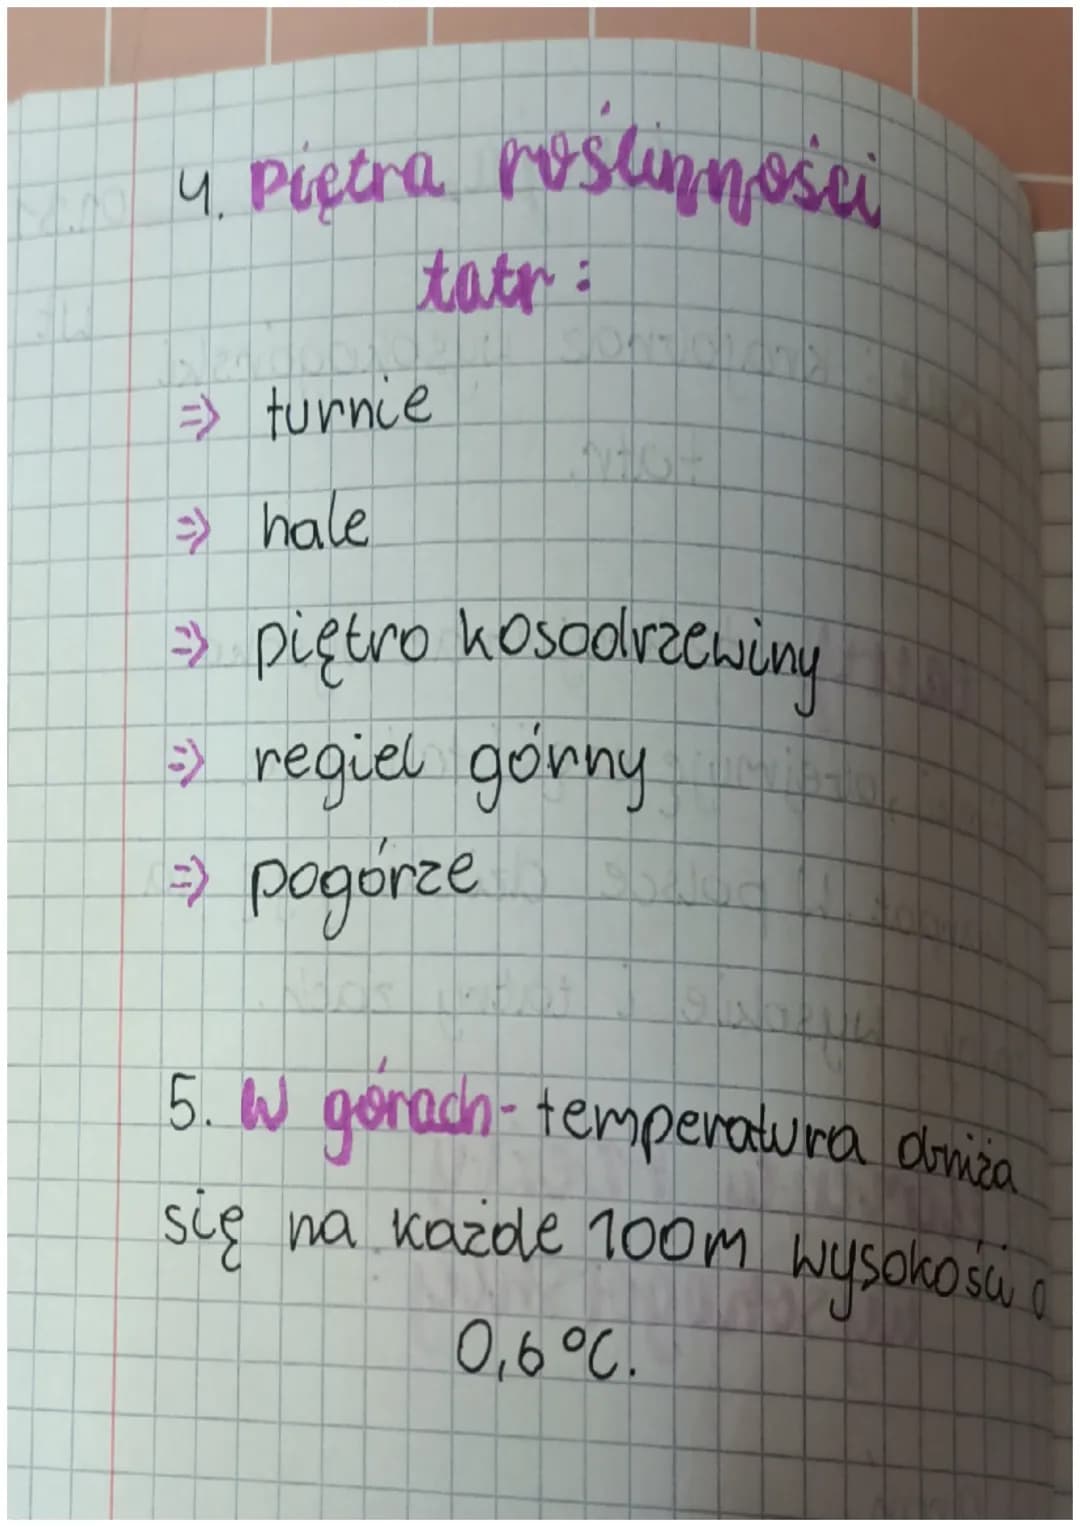 4. Piętra roślinności
tatr:
=> turnie
=> hale
=> piętro kosodrzewiny
=> regiel górny
=> pogórze
5. W górach - temperatura obniża
się na każde 100m wysokości o
0,6°C.